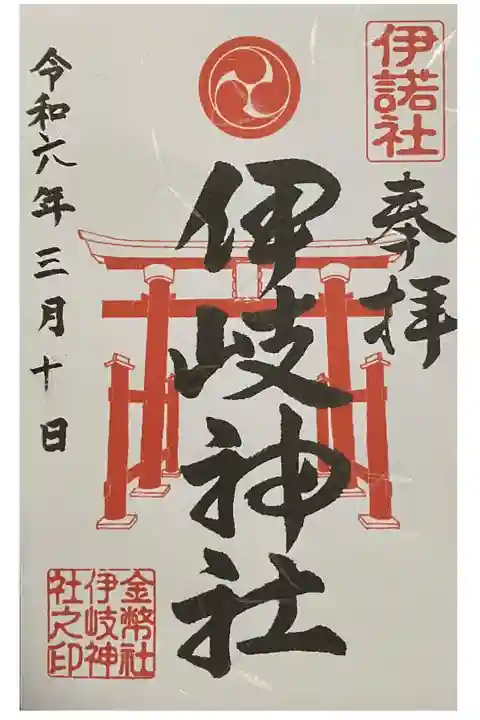 伊諾社
奉拝
伊岐神社
令和六年三月十日
金幣社
伊岐神
社之印